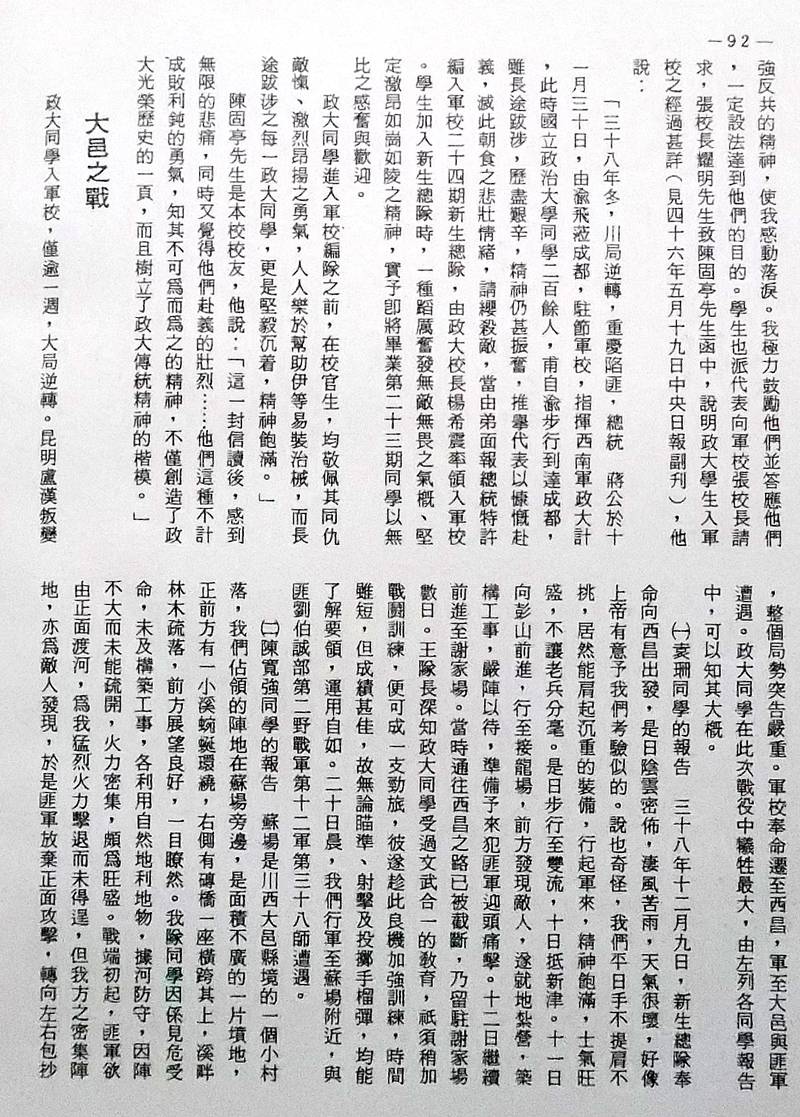 —92—
強反共的精神，使我感動落淚。我極力鼓勵他們並答應他們
，一定設法達到他們的目的。學生也派代表向軍校張校長請
求，張校長耀明先生致陳固亭先生函中，說明政大學生入軍
校之經過甚詳（見四十六年五月十九日中央日報副刊），他
說：
「三十八年冬，川局逆轉，重慶陷匪，總統　蔣公於十
一月三十日，由渝飛蒞成都，駐節軍校，指揮西南軍政大計
，此時國立政治大學同學二百餘人，甫自渝步行到達成都，
雖長途跋涉，歷盡艱辛，精神仍甚振奮，推舉代表以慷慨赴
義，滅此朝食之悲壯情緒，請纓殺敵，當由弟面報總統特許
編入軍校二十四期新生總隊，由政大校長楊希震率領入軍校
。學生加入新生總隊時，一種蹈厲奮發無敵無畏之氣概、堅
定激昂如崗如陵之精神，實予即將畢業第二十三期同學以無
比之感奮與歡迎。
政大同學進入軍校編隊之前，在校官生，均敬佩其同仇
敵愾、激烈昂揚之勇氣，人人樂於幫助伊等易裝治械，而長
途跋涉之每一政大同學，更是堅毅沉着，精神飽滿。」
陳固亭先生是本校校友，他說：「這一封信讀後，感到
無限的悲痛，同時又覺得他們赴義的壯烈……他們這種不計
成敗利鈍的勇氣，知其不可為而為之的精神，不僅創造了政
大光榮歷史的一頁，而且樹立了政大傳統精神的楷模。」
大邑之戰
政大同學入軍校，僅逾一週，大局逆轉。昆明盧漢叛變
，整個局勢突告嚴重。軍校奉命遷至西昌，軍至大邑與匪軍
遭遇。政大同學在此次戰役中犧牲最大，由左列各同學報告
中，可以知其大概。
㈠袁珊同學的報告　三十八年十二月九日，新生總隊奉
命向西昌出發，是日陰雲密佈，淒風苦雨，天氣很壞，好像
上帝有意予我們考驗似的。說也奇怪，我們平日手不提肩不
挑，居然能肩起沉重的裝備，行起軍來，精神飽滿，士氣旺
盛，不讓老兵分毫。是日步行至雙流，十日抵新津。十一日
向彭山前進，行至接龍場，前方發現敵人，遂就地紮營，築
構工事，嚴陣以待，準備予來犯匪軍迎頭痛擊。十二日繼續
前進至謝家場。當時通往西昌之路已被截斷，乃留駐謝家場
數日。王隊長深知政大同學受過文武合一的教育，祇須稍加
戰鬪訓練，便可成一支勁旅，彼遂趁此良機加強訓練，時間
雖短，但成績甚佳，故無論瞄準、射擊及投擲手榴彈，均能
了解要領，運用自如。二十日晨，我們行軍至蘇場附近，與
匪劉伯誠部第二野戰軍第十二軍第三十八師遭遇。
㈡陳寬強同學的報告　蘇場是川西大邑縣境的一個小村
落，我們佔領的陣地在蘇場旁邊，是面積不廣的一片墳地，
正前方有一小溪蜿蜒環繞，右側有磚橋一座橫跨其上，溪畔
林木疏落，前方展望良好，一目瞭然。我隊同學因係見危受
命，未及構築工事，各利用自然地利地物，據河防守，因陣
不大而未能疏開，火力密集，頗為旺盛。戰端初起，匪軍欲
由正面渡河，為我猛烈火力擊退而未得逞，但我方之密集陣
地，亦為敵人發現，於是匪軍放棄正面攻擊，轉向左右包抄